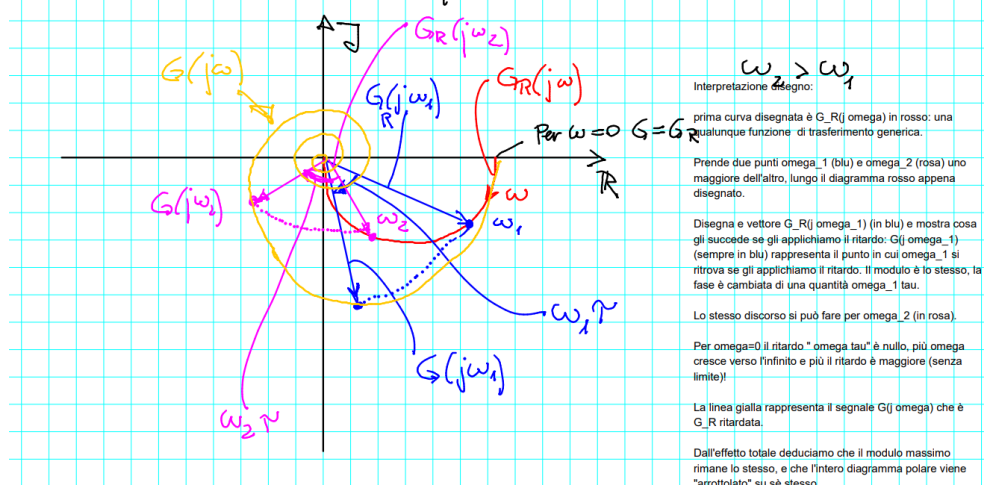 J
G_R(jω_2)
G(jω)
G_R(jω)
G_R(jω_1)
ω_2 > ω_1
Per ω=0 G=G_R
R
ω
G(jω_2)
ω_2
ω_1
ω_1 τ
G(jω_1)
ω_2 τ
Interpretazione disegno:
prima curva disegnata è G_R(j omega) in rosso: una
qualunque funzione di trasferimento generica.
Prende due punti omega_1 (blu) e omega_2 (rosa) uno
maggiore dell'altro, lungo il diagramma rosso appena
disegnato.
Disegna e vettore G_R(j omega_1) (in blu) e mostra cosa
gli succede se gli applichiamo il ritardo: G(j omega_1)
(sempre in blu) rappresenta il punto in cui omega_1 si
ritrova se gli applichiamo il ritardo. Il modulo è lo stesso, la
fase è cambiata di una quantità omega_1 tau.
Lo stesso discorso si può fare per omega_2 (in rosa).
Per omega=0 il ritardo " omega tau" è nullo, più omega
cresce verso l'infinito e più il ritardo è maggiore (senza
limite)!
La linea gialla rappresenta il segnale G(j omega) che è
G_R ritardata.
Dall'effetto totale deduciamo che il modulo massimo
rimane lo stesso, e che l'intero diagramma polare viene
"arrottolato" su sè stesso